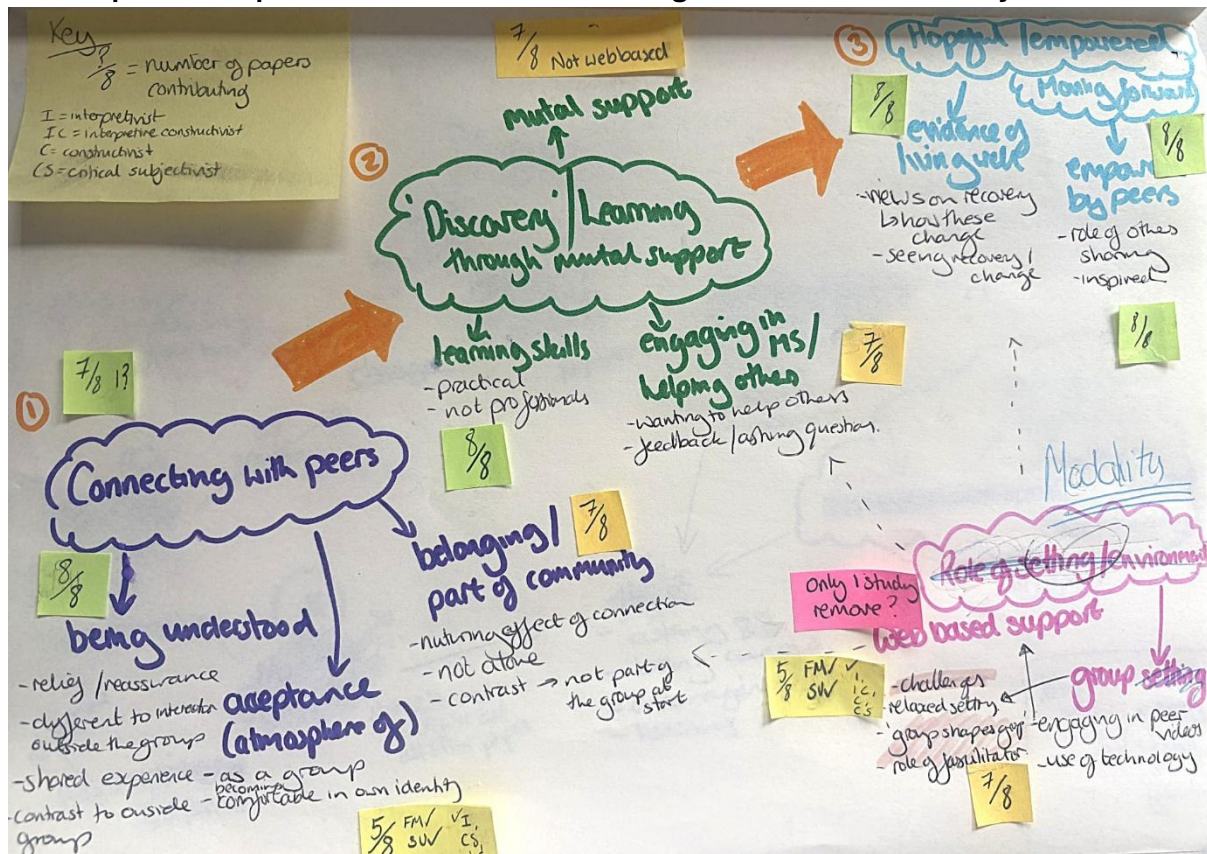 Key
?/8 = number of papers
contributing
I = interpretivist
IC = interpretive constructivist
C = constructivist
CS = critical subjectivist
7/8 Not web based
mutal support
②
Discovery / Learning
through mutal support
learning skills
- practical
- not professionals
8/8
engaging in
MS/
helping others
- wanting to help others
- feedback / asking question.
7/8
③
Hopeful / empowered
Moving forward
8/8
evidence of
living well
- views on recovery
↳ how these
change
- seeing recovery /
change
8/8
by peers
- role of others
sharing
- inspired
8/8
7/8 1?
①
Connecting with peers
8/8
being understood
- relief / reassurance
- different to
outside the group
- shared experience
- contrast to ouside
group
acceptance
(atmosphere of)
- as a group
becoming
- comfortable in own identity
5/8 FM/ ✓ I,
SU✓ CS,
belonging /
part of community
7/8
- nuturing effect of connection
- not alone
- contrast → not part of
the group at
start
Modality
Role of setting / environment
Only 1 study
remove?
web based support
5/8 FM/ ✓ I,
SU✓ IC,
C,
CS
group setting
- challenges
- relaxed setting
- group shapes group
- role of
- engaging in peer
videos
- use of technology
7/8